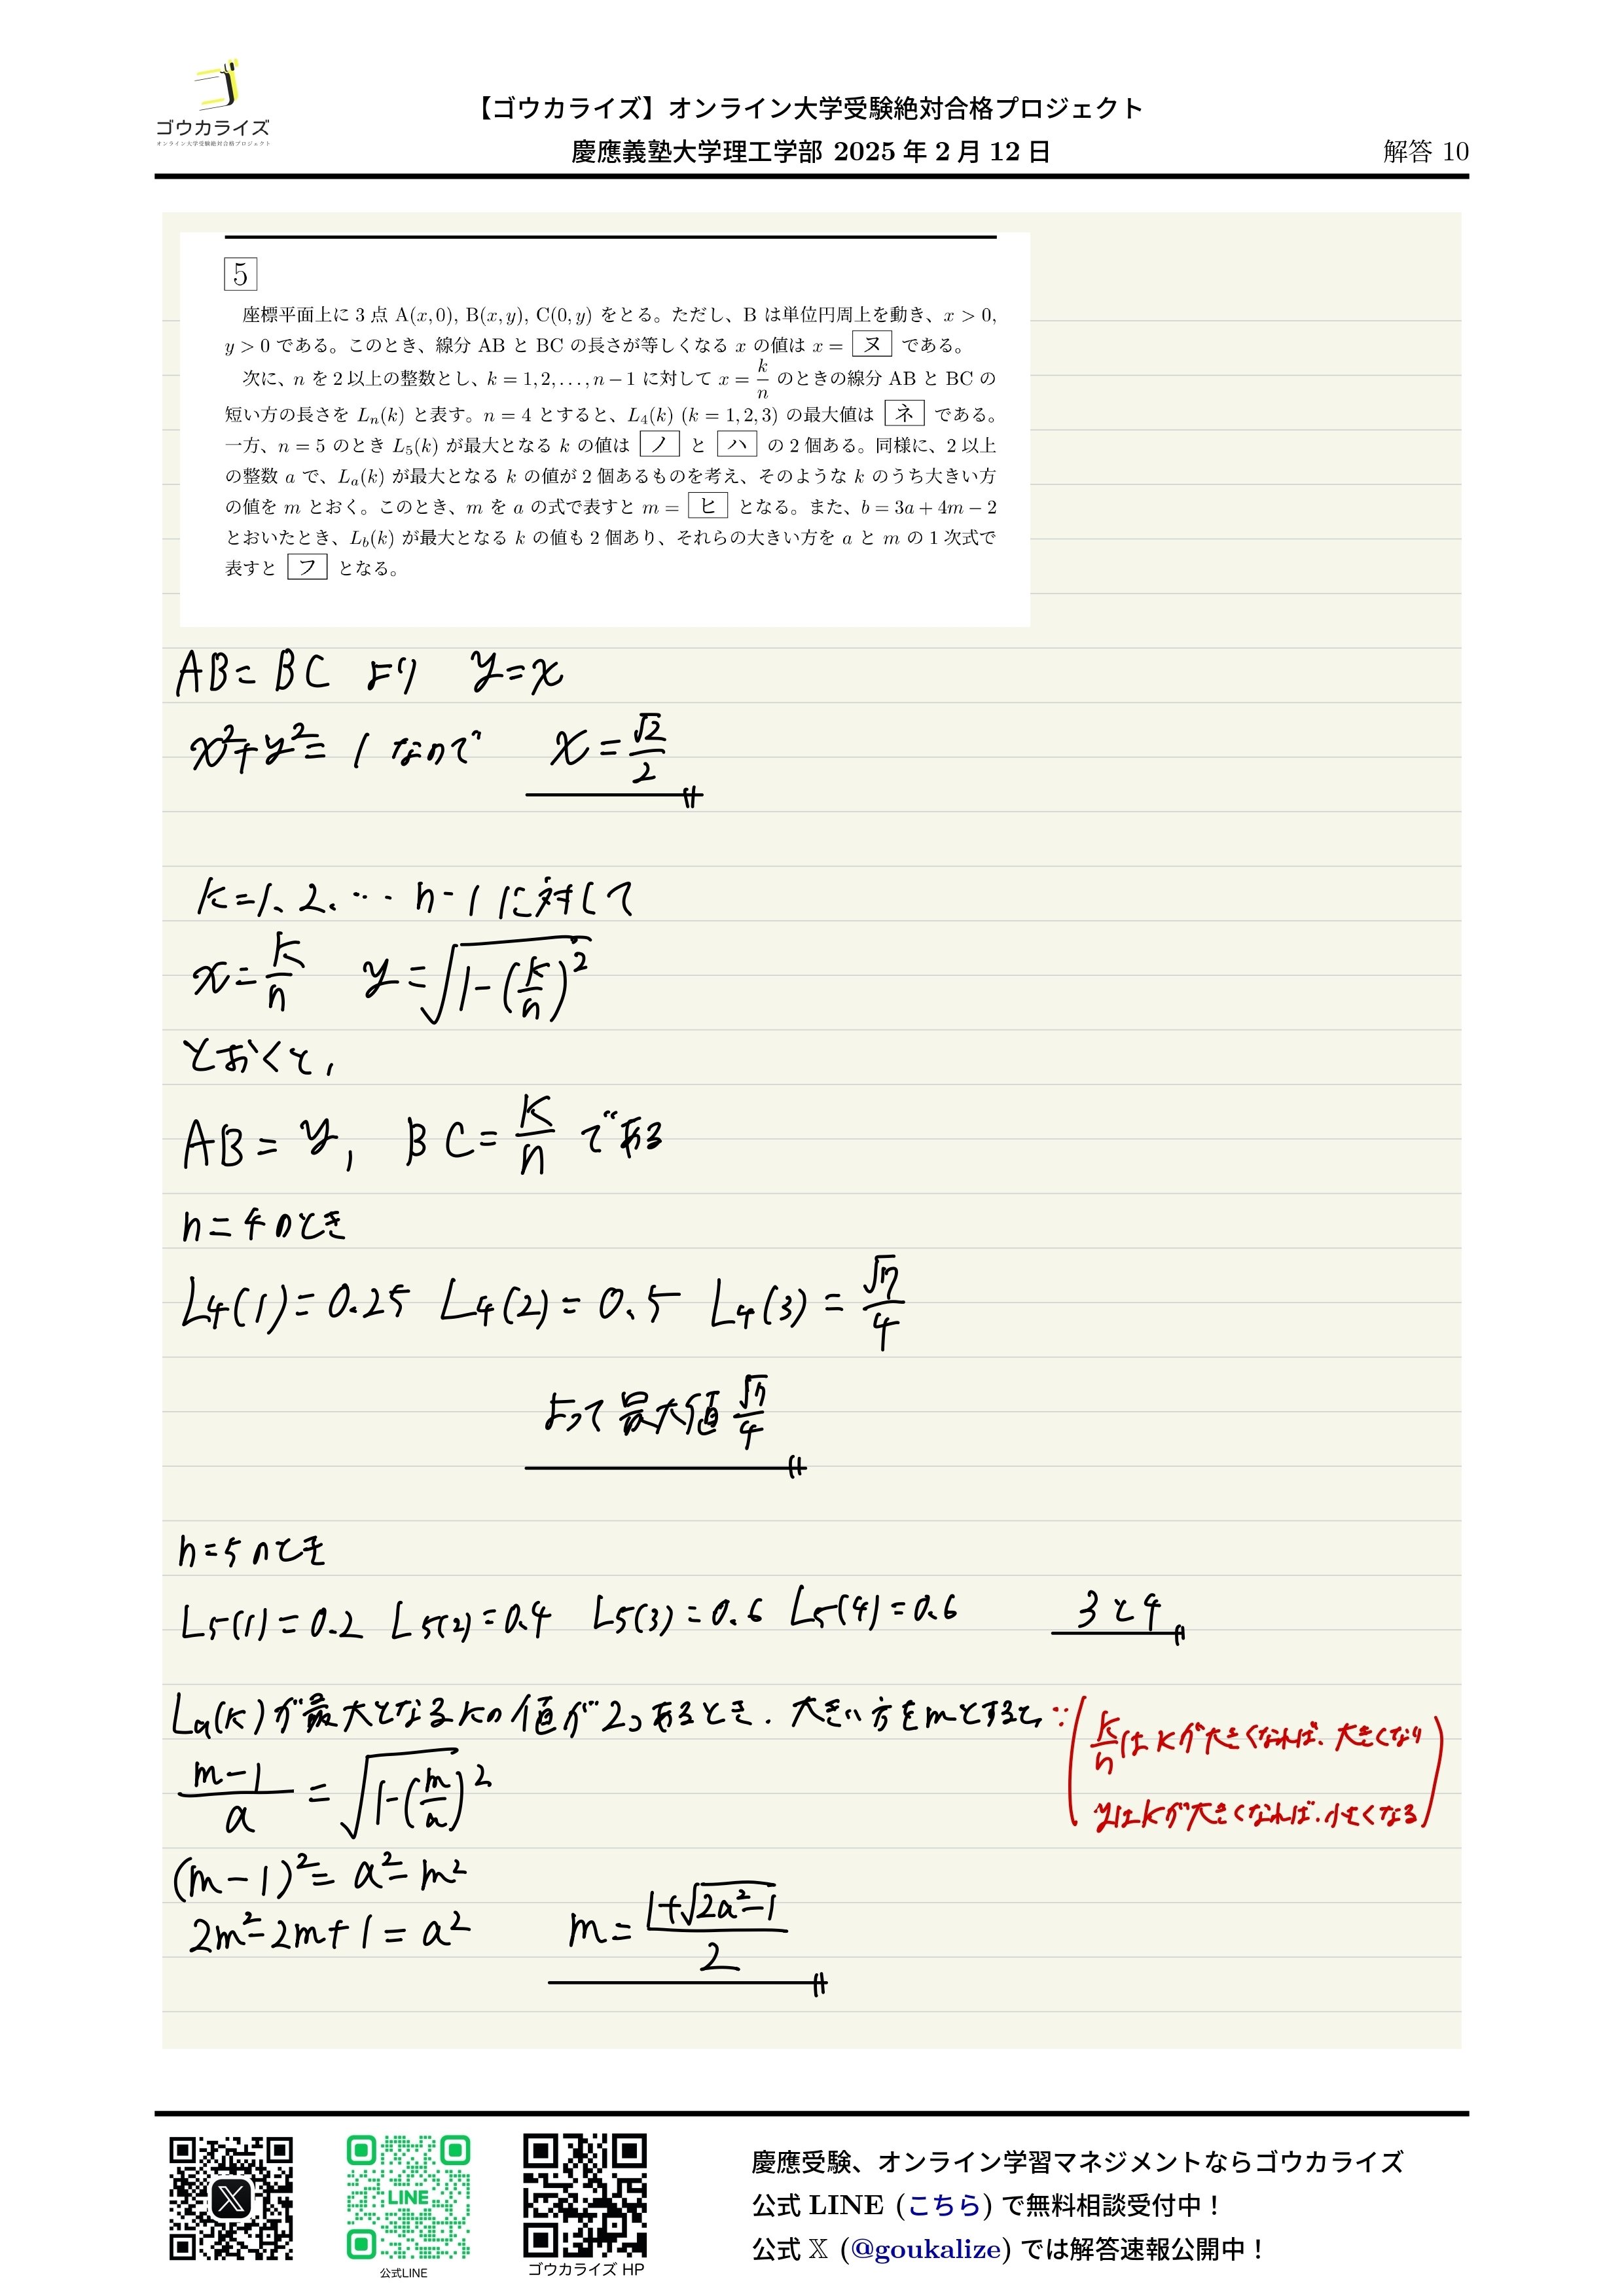 ゴウカライズ
オンライン大学受験絶対合格プロジェクト
【ゴウカライズ】オンライン大学受験絶対合格プロジェクト
慶應義塾大学理工学部 2025 年 2 月 12 日
解答 10
5
座標平面上に 3 点 A(x, 0), B(x, y), C(0, y) をとる。ただし、B は単位円周上を動き、x > 0,
y > 0 である。このとき、線分 AB と BC の長さが等しくなる x の値は x = ヌ である。
次に、n を 2 以上の整数とし、k = 1, 2, . . . , n − 1 に対して x = k/n のときの線分 AB と BC の
短い方の長さを Ln(k) と表す。n = 4 とすると、L4(k) (k = 1, 2, 3) の最大値は ネ である。
一方、n = 5 のとき L5(k) が最大となる k の値は ノ と ハ の 2 個ある。同様に、2 以上
の整数 a で、La(k) が最大となる k の値が 2 個あるものを考え、そのような k のうち大きい方
の値を m とおく。このとき、m を a の式で表すと m = ヒ となる。また、b = 3a + 4m − 2
とおいたとき、Lb(k) が最大となる k の値も 2 個あり、それらの大きい方を a と m の 1 次式で
表すと フ となる。
AB = BC より y = x
x²+y² = 1 なので x = √2/2
k = 1、2、… n-1 に対して
x = k/n y = √1-(k/n)²
とおくと,
AB = y, BC = k/n である
n = 4 のとき
L4(1) = 0.25 L4(2) = 0.5 L4(3) = √7/4
よって 最大値 √7/4
n = 5 のとき
L5(1) = 0.2 L5(2) = 0.4 L5(3) = 0.6 L5(4) = 0.6 3と4
La(k) が最大となるkの値が2つあるとき. 大きい方をmとすると,
∵(k/n は kが大きくなれば、大きくなり
yはkが大きくなれば.小さくなる)
m-1/a = √1-(m/a)²
(m-1)² = a²-m²
2m²-2m+1 = a² m = 1+√2a²-1/2
LINE
公式LINE
ゴウカライズ HP
慶應受験、オンライン学習マネジメントならゴウカライズ
公式 LINE (こちら) で無料相談受付中!
公式 𝕏 (@goukalize) では解答速報公開中!